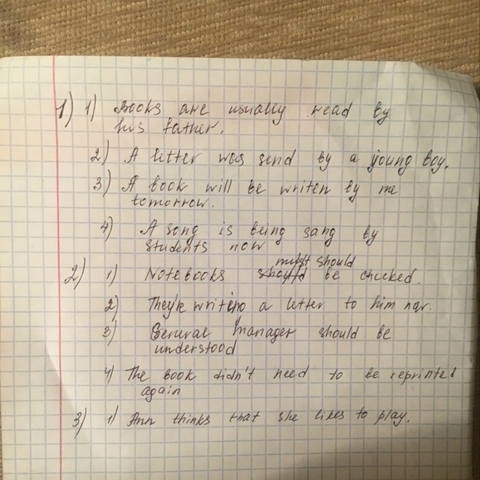 1) 1) Books are usually read by
his father.
2) A letter was send by a young boy.
3) A book will be writen by me
tomorrow.
4) A song is being sang by
students now
must should
2) 1) Notebooks should be checked.
2) They're writing a letter to him now.
3) General manager should be
understood
4) The book didn't need to be reprinted
again
3) 1) Ann thinks that she likes to play.